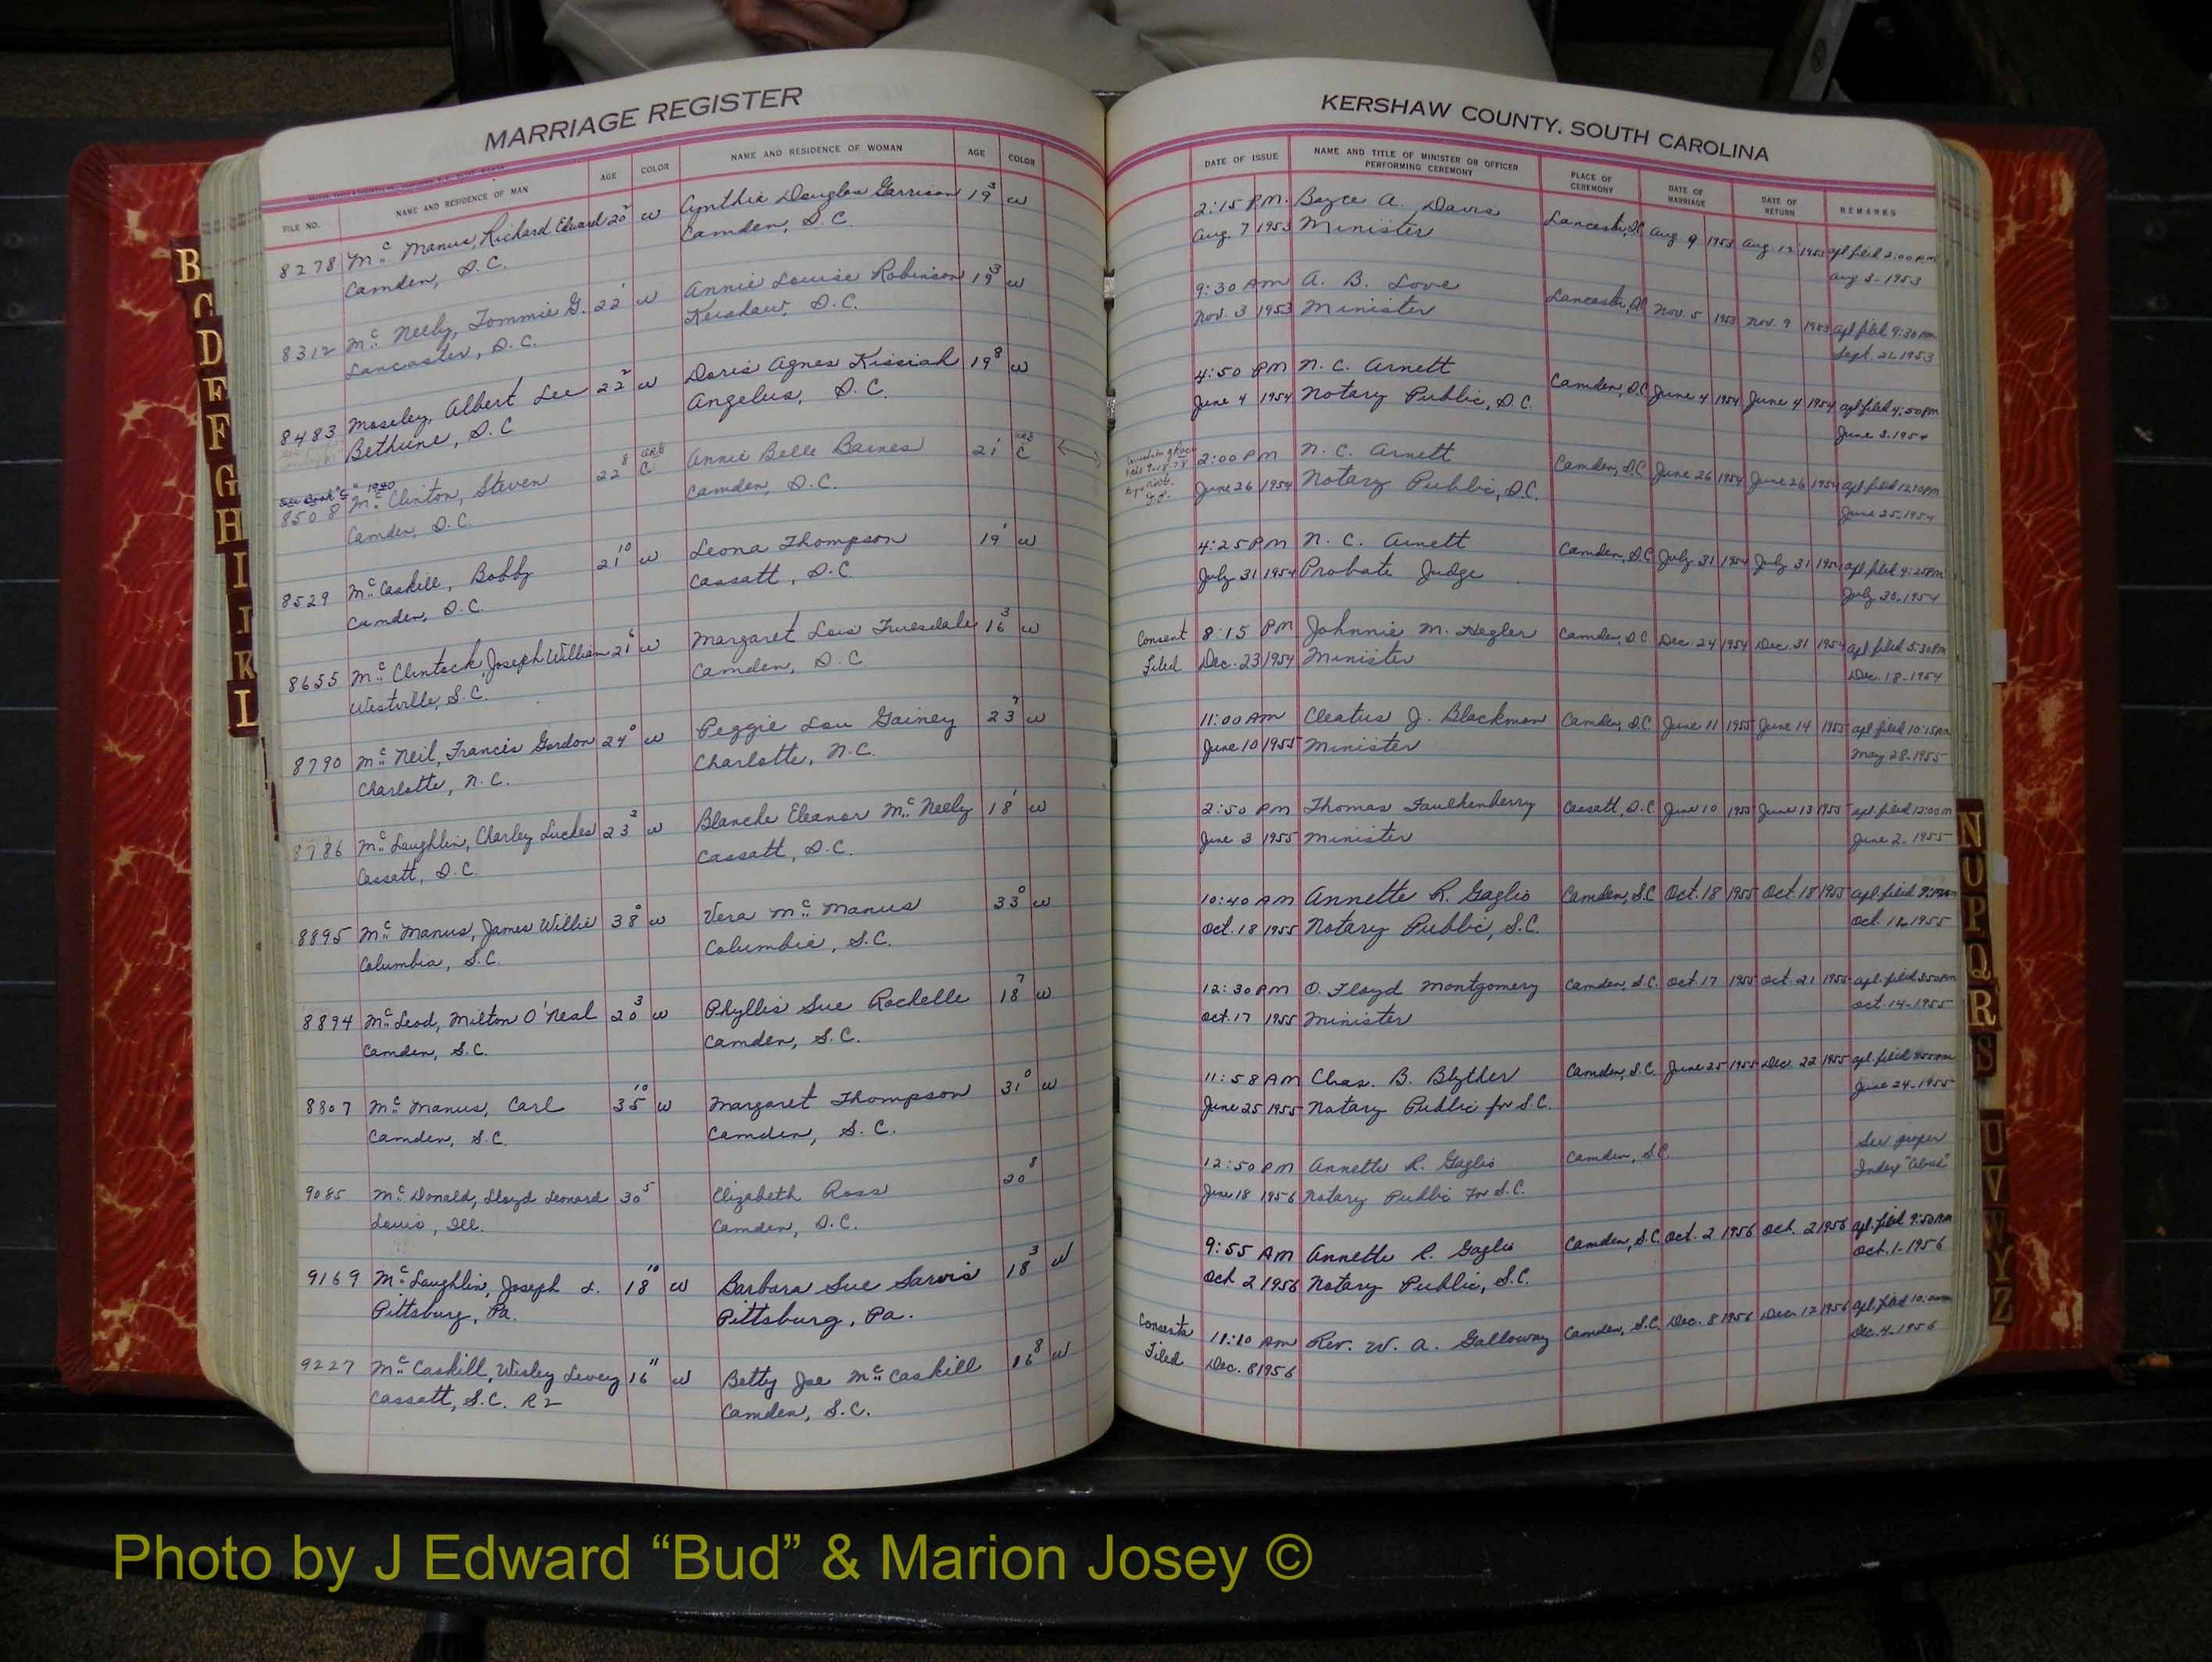 MARRIAGE REGISTER
FILE NO. NAME AND RESIDENCE OF MAN AGE COLOR NAME AND RESIDENCE OF WOMAN AGE COLOR
8278 Mc Manus, Richard Edward 20 w Cynthia Douglas Garrison 19 3 w
Camden, S.C. Camden, S.C.
8312 Mc Neely, Tommie G. 22 1 w Annie Louise Robinson 19 3 w
Lancaster, S.C. Kershaw, S.C.
8483 Moseley, Albert Lee 22 w Doris Agnes Kissiah 19 8 w
Bethune, S.C Angelus, S.C.
See Book "C" 1940
8508 Mc Clinton, Steven 22 8 C Annie Belle Barnes 21 1 C
Camden, S.C. Camden, S.C.
8529 Mc Caskill, Bobby 21 10 w Leona Thompson 19 1 w
Camden, S.C. Cassatt, S.C.
8655 Mc Clintock, Joseph William 21 6 w Margaret Lois Truesdale 16 3 w
Westville, S.C. Camden, S.C
8790 Mc Neil, Francis Gordon 24 0 w Peggie Lou Gainey 23 7 w
Charlotte, N.C. Charlotte, N.C.
8786 Mc Laughlin, Charley 23 w Blanche Eleanor Mc Neely 18 1 w
Cassatt, S.C. Cassatt, S.C.
8895 Mc Manus, James Willie 38 0 w Vera Mc Manus 33 0 w
Columbia, S.C. Columbia, S.C.
8894 Mc Leod, Milton O'Neal 20 3 w Phyllis Sue Rochelle 18 7 w
Camden, S.C. Camden, S.C.
8807 Mc Manus, Carl 35 10 w Margaret Thompson 31 0 w
Camden, S.C. Camden, S.C.
9085 Mc Donald, Lloyd Leonard 30 5 Elizabeth Ross 20 8
Louis, Ill. Camden, S.C.
9169 Mc Laughlin, Joseph L. 18 10 w Barbara Sue Sarvis 18 3 w
Pittsburg, Pa. Pittsburg, Pa.
9227 Mc Caskill, Wesley Levey 16 11 w Betty Joe Mc Caskill 16 8 w
Cassatt, S.C. R2 Camden, S.C.
KERSHAW COUNTY, SOUTH CAROLINA
DATE OF ISSUE NAME AND TITLE OF MINISTER OR OFFICER PERFORMING CEREMONY PLACE OF CEREMONY DATE OF MARRIAGE DATE OF RETURN REMARKS
2:15 P.M. Boyce A. Davis Lancaster, S.C. Aug. 9 1953 Aug. 12 1953 apl filed 2:00 P.M.
Aug. 7 1953 Minister Aug 3-1953
9:30 AM A. B. Love Lancaster, S.C. Nov. 5 1953 Nov. 9 1953 apl filed 9:30 AM
Nov. 3 1953 Minister Sept. 21-1953
4:50 PM N. C. Arnett Camden, S.C. June 4 1954 June 4 1954 apl filed 4:50 PM
June 4 1954 Notary Public, S.C. June 3-1954
2:00 PM N. C. Arnett Camden, S.C June 26 1954 June 26 1954 apl filed PM
June 26 1954 Notary Public, S.C. June 25-1954
4:25 PM N. C. Arnett Camden, S.C July 31 1954 July 31 1954 apl. filed 4:25 PM
July 31 1954 Probate Judge July 30-1954
Consent 8:15 PM Johnnie M. Hegler Camden, S.C Dec. 24 1954 Dec. 31 1954 apl. filed 5:30 PM
Filed Dec. 23 1954 Minister Dec. 18-1954
11:00 AM Cleatus J. Blackmon Camden, S.C June 11 1955 June 14 1955 apl. filed 10:15 AM
June 10 1955 Minister May 28-1955
2:50 PM Thomas Faulkenberry Cassatt, S.C. June 10 1955 June 13 1955 apl. filed 12:00 M
June 3 1955 Minister June 2-1955
10:40 AM Annette R. Gaglio Camden, S.C Oct. 18 1955 Oct. 18 1955 apl. filed
Oct. 18 1955 Notary Public, S.C. Oct. 1955
12:30 PM O. Floyd Montgomery Camden, S.C. Oct 17 1955 Oct 21 1955 apl. filed PM
Oct. 17 1955 Minister Oct. 14-1955
11:58 AM Chas. B. Blyther Camden, S.C. June 25 1955 Dec. 22 1955 apl. filed
June 25 1955 Notary Public for S.C. June 24-1955
12:50 PM Annette R. Gaglio Camden, S.C. See proper
June 18 1956 Notary Public For S.C. Index "Colored"
9:55 AM Annette R. Gaglio Camden, S.C Oct. 2 1956 Oct. 2 1956 apl. filed 9:50 AM
Oct 2 1956 Notary Public, S.C. Oct. 1-1956
Consents 11:10 AM Rev. W. A. Galloway Camden, S.C. Dec. 8 1956 Dec. 12 1956 apl. filed
Filed Dec. 8 1956 Dec. 4-1956
B
C
D
E
F
G
H
I
J
K
L
N
O
P
Q
R
S
U
V
W
Y
Z
Photo by J Edward “Bud” & Marion Josey ©